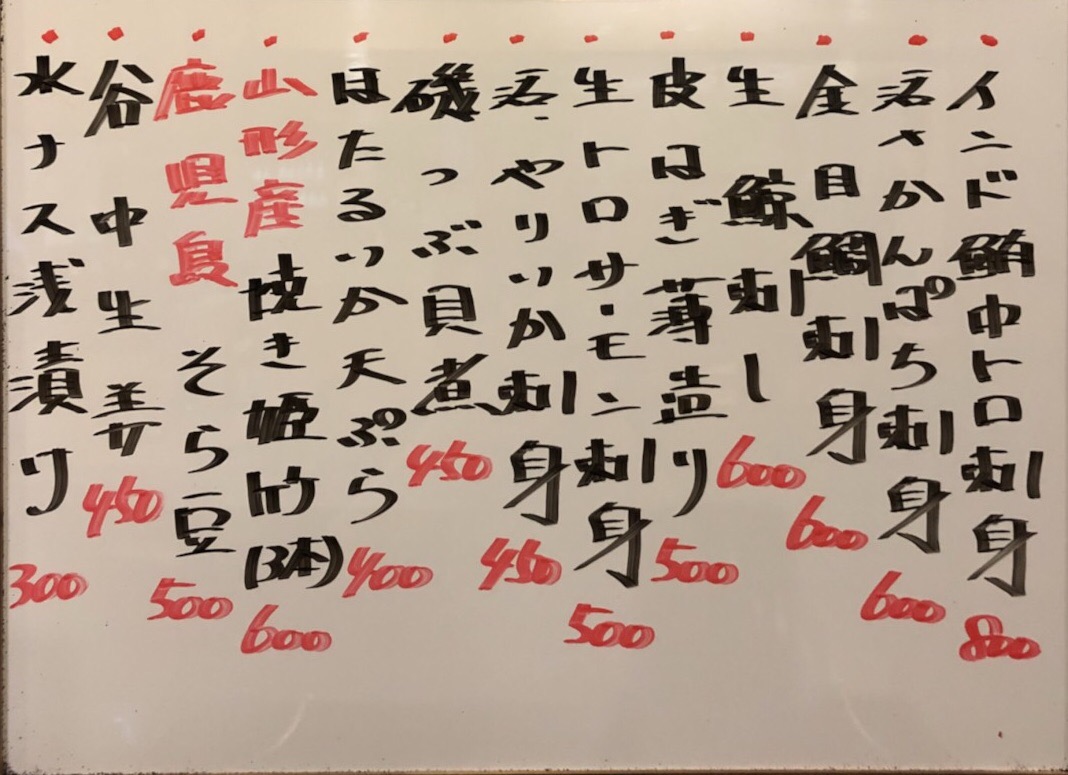 インド鮪中トロ刺身 800
活さかんぱち刺身 600
金目鯛刺身 600
生鯨刺し 600
皮はぎ薄造り 500
生トロサーモン刺身 500
活・やりいか刺身 450
磯つぶ貝煮 450
ほたるいか天ぷら 400
山形産焼き姫竹(3本) 600
鹿児島そら豆 500
谷中生姜 450
水ナス浅漬け 300